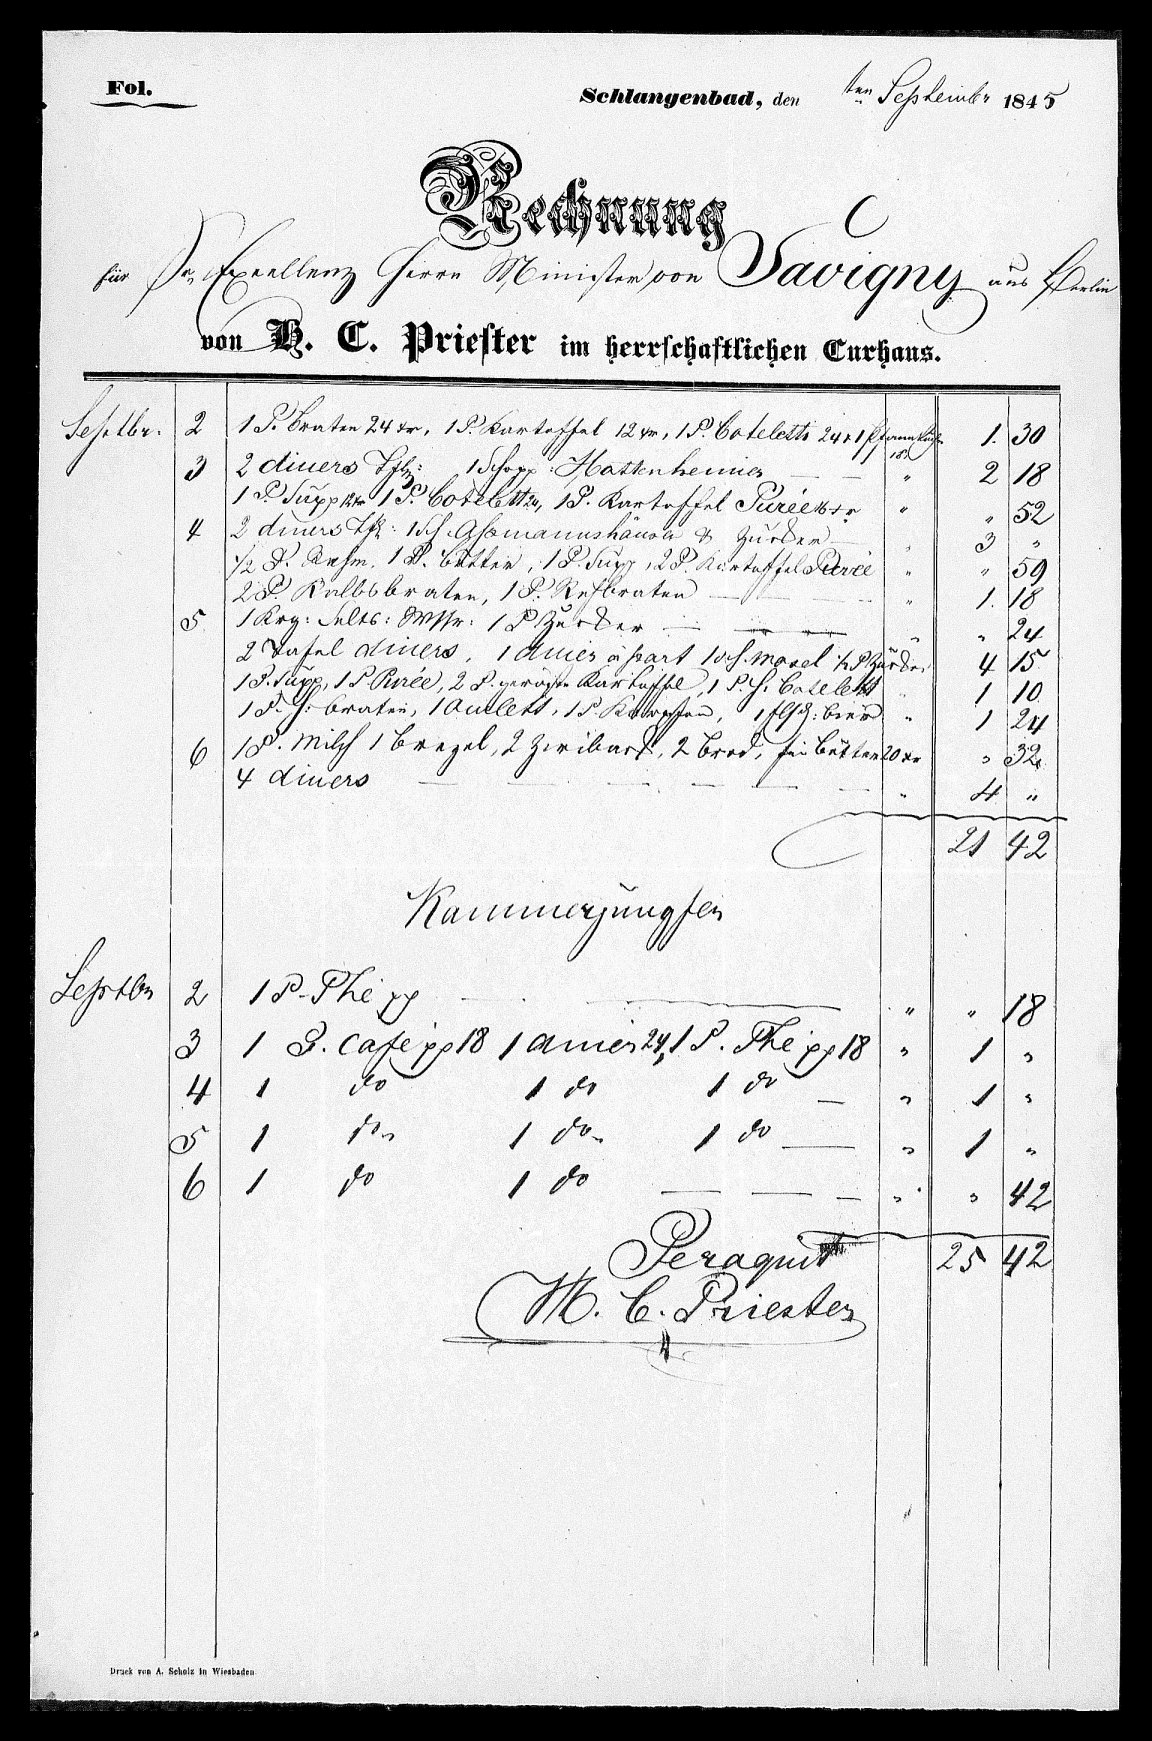 Fol.
Schlangenbad, den ten September 1845
Rechnung
für Sr. Excellenz Herrn Minister von Savigny aus Berlin
von H. C. Priester im herrschaftlichen Curhaus.
Septbr. 2 1 P. Braten 24 xr, 1 P. Kartoffel 12 xr, 1 P. Coteletts 24 x 1 Pfannkuch 18 1. 30
3 2 diners 1 Schopp: Hattenheimer " 2 18
1 P. Supp 12 xr 1 P. Cotelett 24, 1 P. Kartoffel Purée 16 xr " " 52
4 2 diners 1 Sch. Assmannshäuser & Zucker " 3 "
1/2 P. Rahm, 1 P. Butter, 1 P. Supp, 2 P. Kartoffel Purée " " 59
2 P. Kalbsbraten, 1 P. Rehbraten " 1. 18
5 1 Krg: Selts: Wssr: 1 P Zucker " " 24
2 Tafel diners, 1 diner à part 1 Sch. Mosel 1/2 P Zucker 4 15
1 P. Supp, 1 P Purée, 2 P. geröste Kartoffel, 1 P. H. Cotelett " 1 10
1 P. H. braten, 1 Omlett, 1 P. Karpfen, 1 flsch: bier " 1 24
6 1 P. Milch 1 brezel, 2 Zwiback, 2 Brod, Butter 20 xr " 32
4 diners " 4 "
21 42
Kammerjungfer
Septbr 2 1 P. The pp " " 18
3 1 P. Cafe pp 18 1 diner 24, 1 P. The pp 18 " 1 "
4 1 do 1 do 1 do " 1 "
5 1 do 1 do 1 do " 1 "
6 1 do 1 do " " 42
25 42
Peraquit
H. C. Priester
Druck von A. Scholz in Wiesbaden